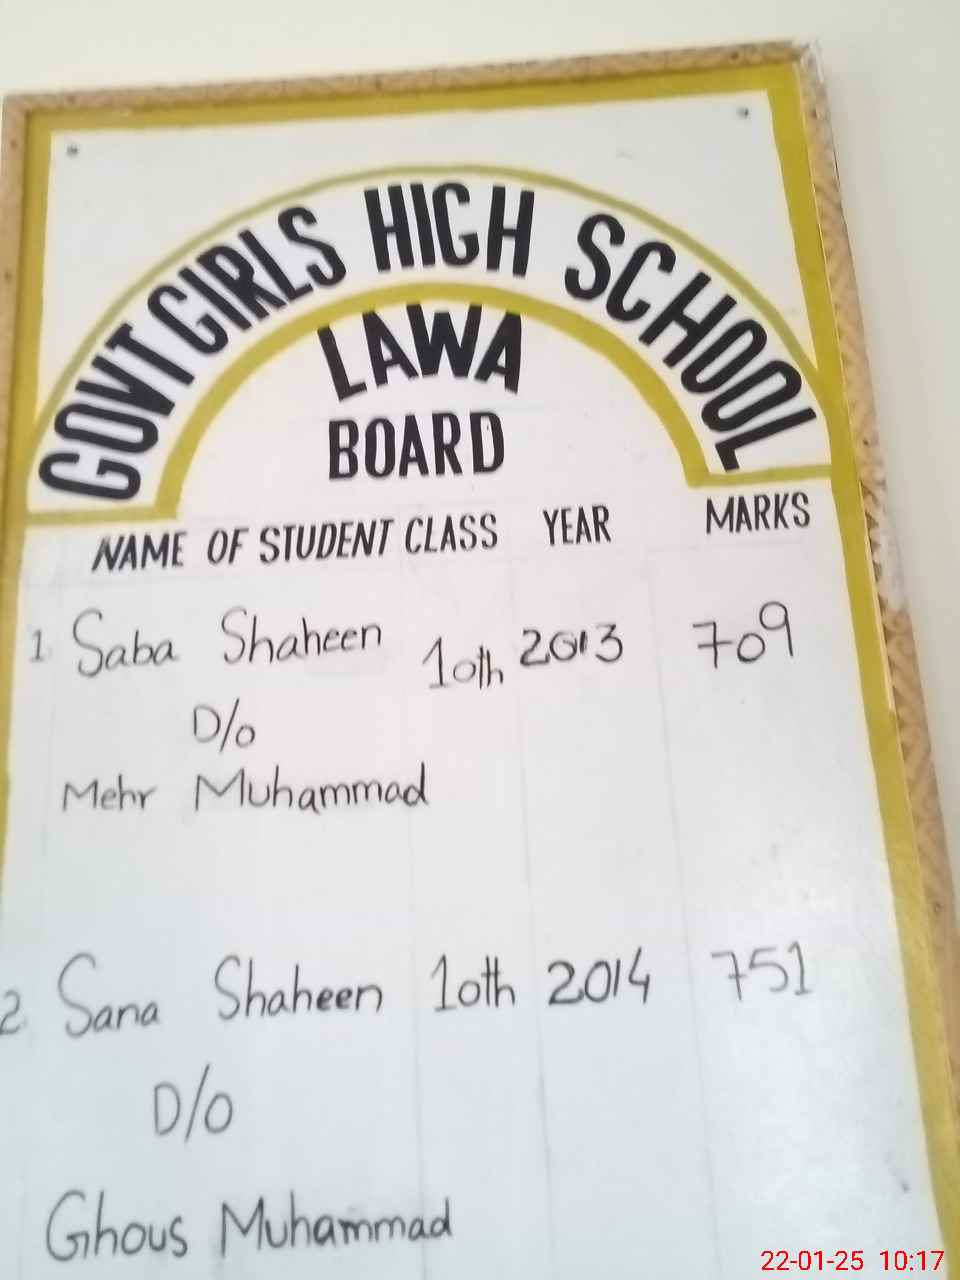 GOVT GIRLS HIGH SCHOOL
LAWA
BOARD
NAME OF STUDENT CLASS YEAR MARKS
1. Saba Shaheen 10th 2013 709
D/o
Mehr Muhammad
2. Sana Shaheen 10th 2014 751
D/O
Ghous Muhammad
22-01-25 10:17